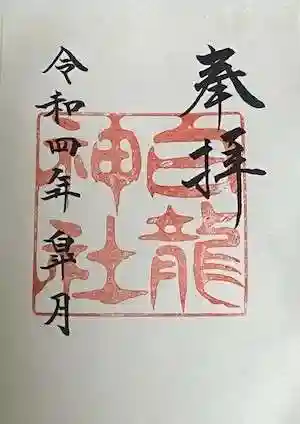 奉拝
白龍
神社
令和四年 皐月